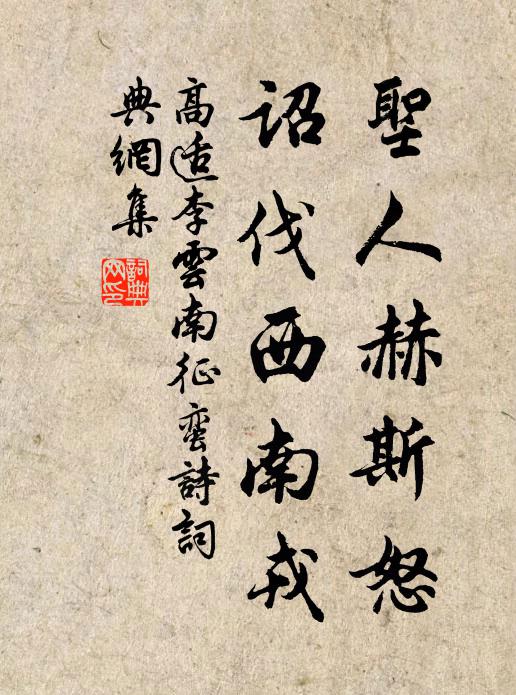 聖人赫斯怒
詔伐西南戎
高适李雲南征蠻詩詞
典網集
詞典
网印